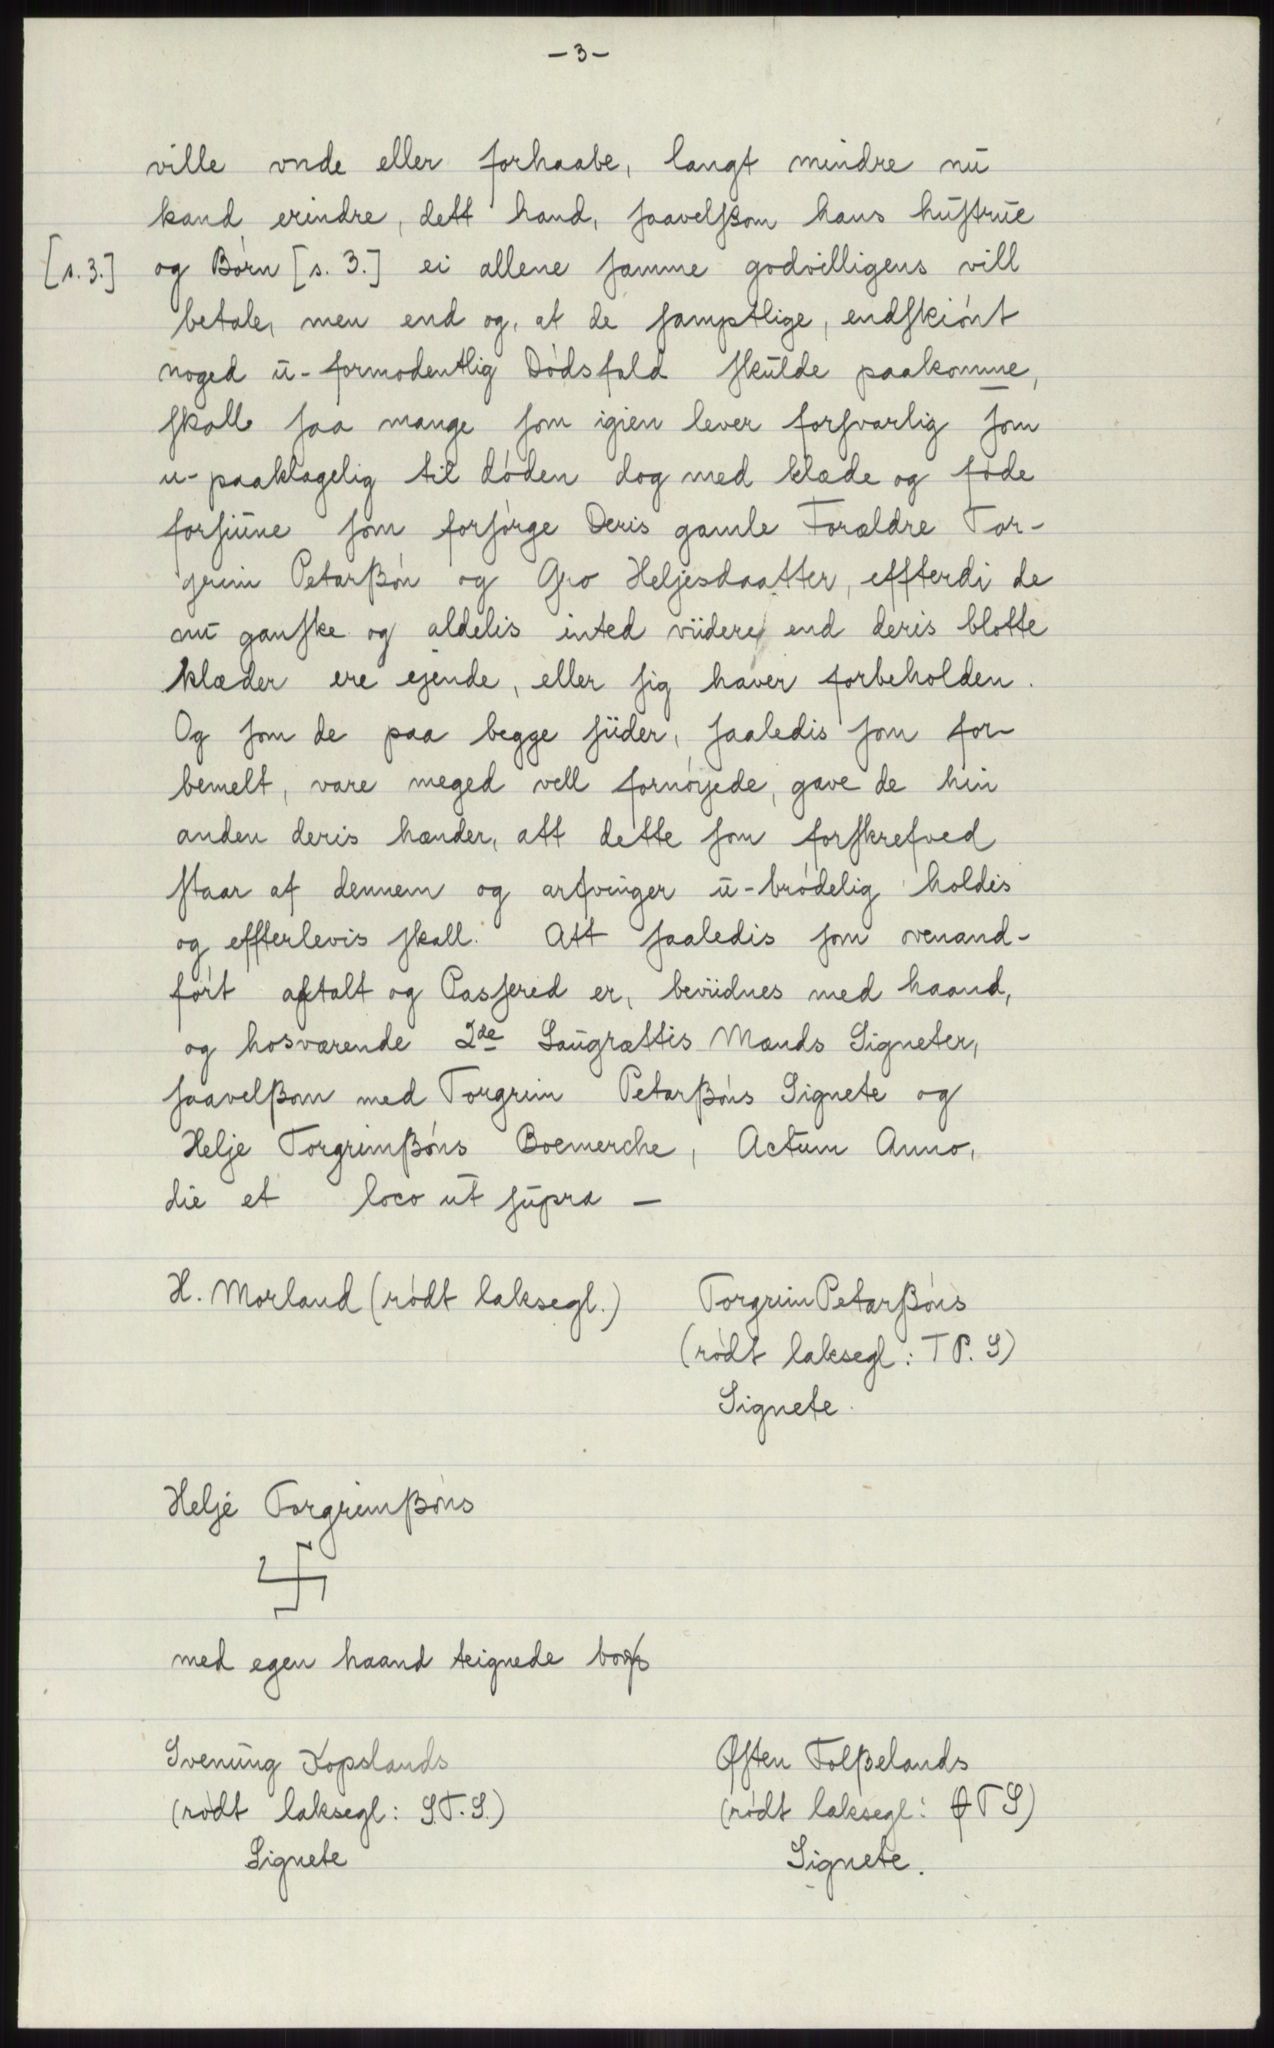 - 3 -
ville vnde eller forhaabe, langt mindre nu
kand erindre, dett hand, saavelsom hans hustrue
[s. 3.] og Børn [s. 3.] ei allene samme godvilligens vill
betale, men end og, at de samptlige, endskiönt
noged u-formodentlig Dødsfald skulde paakomme,
skall saa mange som igien lever forsvarlig som
u-paaklagelig til døden dog med klæde og føde
forsiune som forsørge Deris gamle Forældre Tor-
grim Petarßøn og Gro Heljesdaatter, effterdi de
nu ganske og aldelis inted viidere end deris blotte
klæder ere ejende, eller sig haver forbeholden.
Og som de paa begge siider, saaledis som for-
bemelt, vare meged vell fornøyede, gave de hin
anden deris hænder, att dette som forskrefved
staar af dennem og arfvinger u-brødelig holdis
og effterlevis skall. Att saaledis som ovenand-
ført aftalt og Passered er, beviidnes med haand,
og hosværende 2de Laugrættis Mænds Signeter,
saavelßom med Torgrim Petarßøns Signete og
Helje Torgrimßøns Boemerche, Actum Anno,
die et loco ut supra —
H. Morland (rødt laksegl.) Torgrim Petarßøns
(rødt laksegl: T P. S)
Signete.
Helje Torgrimßøns
med egen haand teignede
Svenung Kopslands Østen Folßelands
(rødt laksegl: S.T.S.) (rødt laksegl: Ø T S)
Signete Signete.